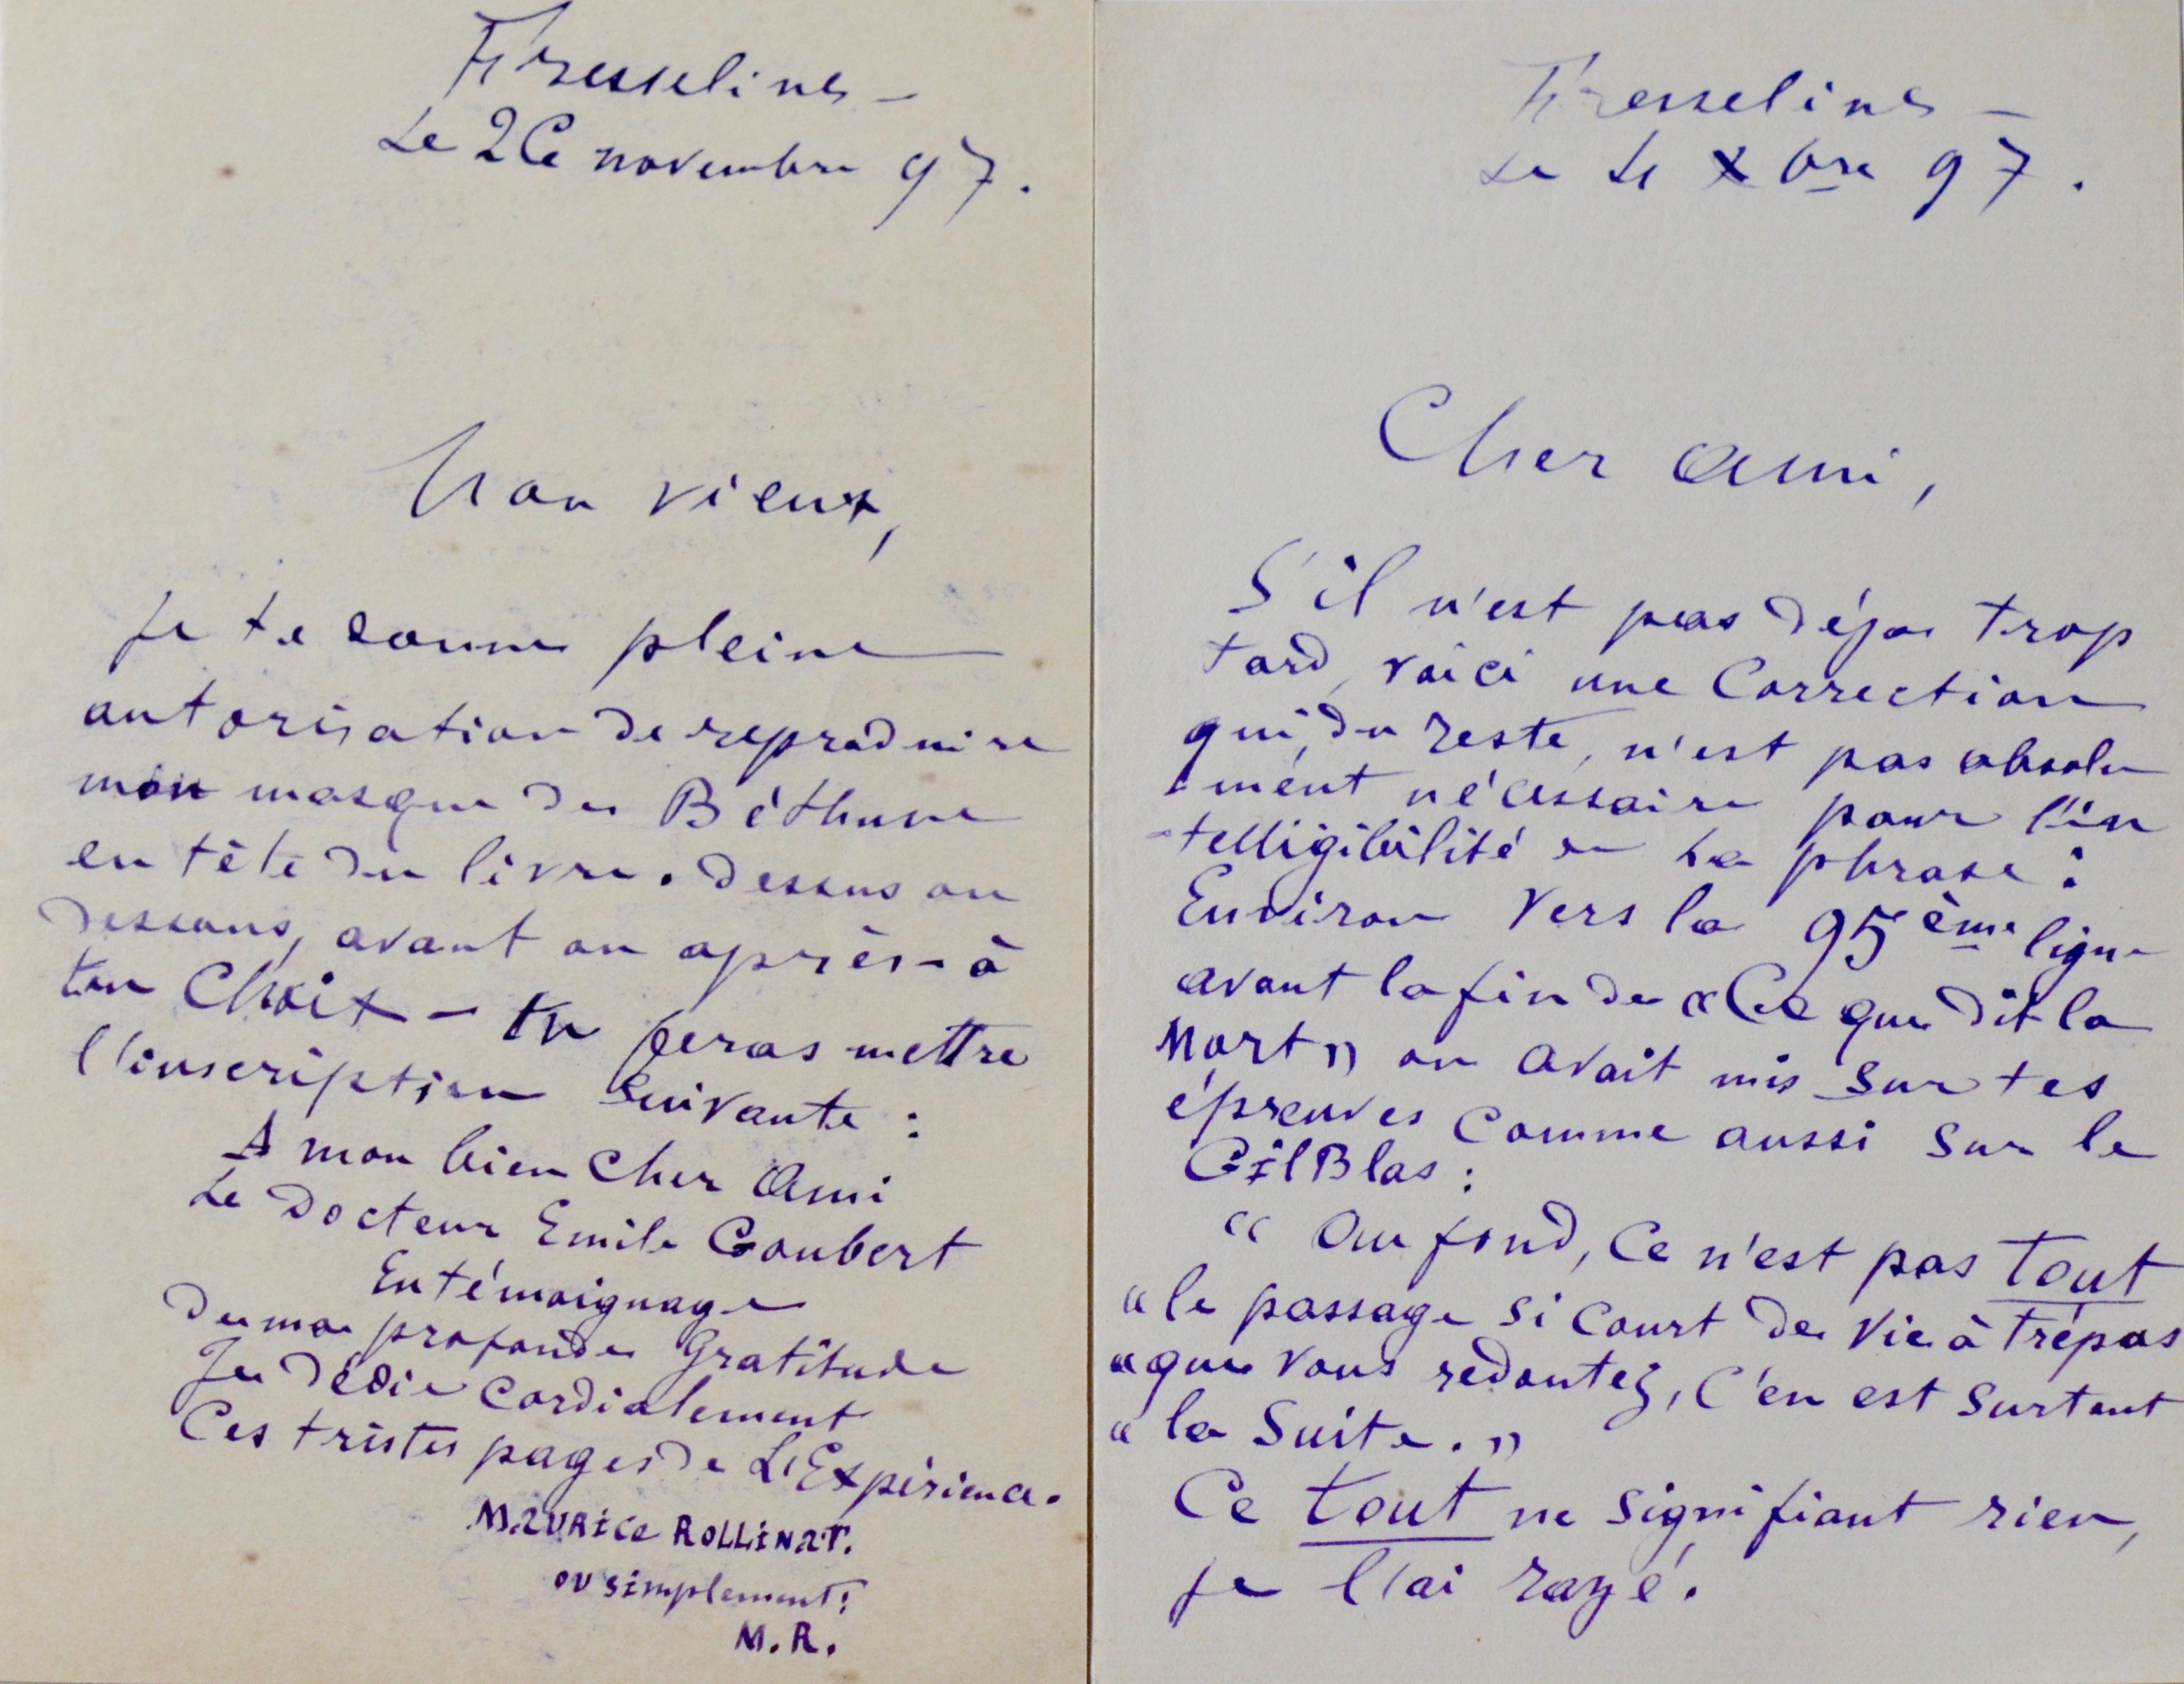 Fresselines –
Le 26 novembre 97.
Mon vieux,
Je te donne pleine
autorisation de reproduire
mon masque de Béthune
en tête du livre. dessus ou
dessous, avant ou après – à
ton Choix – tu feras mettre
l'inscription suivante :
A mon bien Cher Ami
Le Docteur Emile Goubert
En témoignage
de ma profonde Gratitude
Je Dédie Cordialement
Ces tristes pages de L'Expérience.
MAURiCe ROLLiNAT.
ou simplement :
M.R.
Fresselines –
Le 4 Xbre 97.
Cher Ami,
S'il n'est pas déjà trop
tard, voici une Correction
qui, du reste, n'est pas absolu
-ment nécessaire pour l'in
-telligibilité de la phrase :
Environ Vers la 95ème ligne
avant la fin de « Ce que dit la
Mort » on avait mis sur tes
épreuves Comme aussi sur le
Gil Blas :
« Au fond, Ce n'est pas tout
« le passage si Court de Vie à trépas
« que Vous redoutez, C'en est surtout
« la Suite. »
Ce tout ne signifiant rien,
je l'ai rayé.